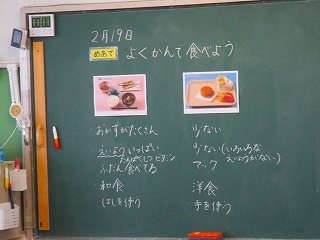 2月19日
めあて よくかんで食べよう
おかずがたくさん
えいよういっぱい
たんぱくしつ ビタミン
ふだん食べてる
・和食
はしを使う
少ない
少ない(いろいろな
えいようがない)
マック
・洋食
手を使う